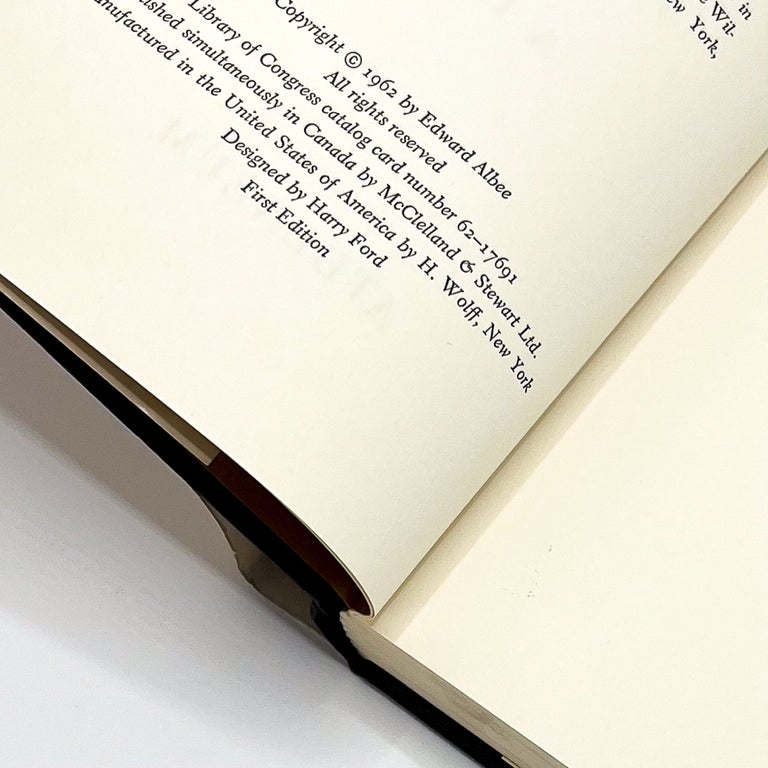 in
Wil.
New York,
Copyright © 1962 by Edward Albee
All rights reserved
Library of Congress catalog card number 62–17691
simultaneously in Canada by McClelland & Stewart Ltd.
in the United States of America by H. Wolff, New York
Designed by Harry Ford
First Edition